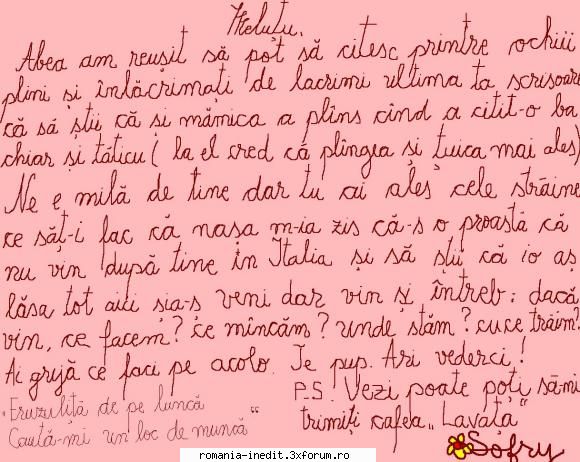 Meluțu,
Abea am reușit să pot să citesc printre ochiii
plini și înlăcrimați de lacrimi ultima ta scrisoare
că să știi că și mămica a plîns cînd a citit-o ba
chiar și tăticu ( la el cred că plîngea și țuica mai ales)
Ne e milă de tine dar tu ai ales cele străine
ce săț-i fac că nașa m-ia zis că-s o proastă că
nu vin după tine în Italia și să știi că io aș
lăsa tot aici și a-s veni dar vin și întreb: dacă
vin, ce facem? ce mîncăm? unde stăm? cu ce trăim?
Ai grijă ce faci pe acolo. Te pup. Ari vederci!
P.S. Vezi poate poți sămi
trimiți cafea „Lavața"
„Eruzuliță de pe luncă
Caută-mi un loc de muncă"
Sofry
romania-inedit.3xforum.ro